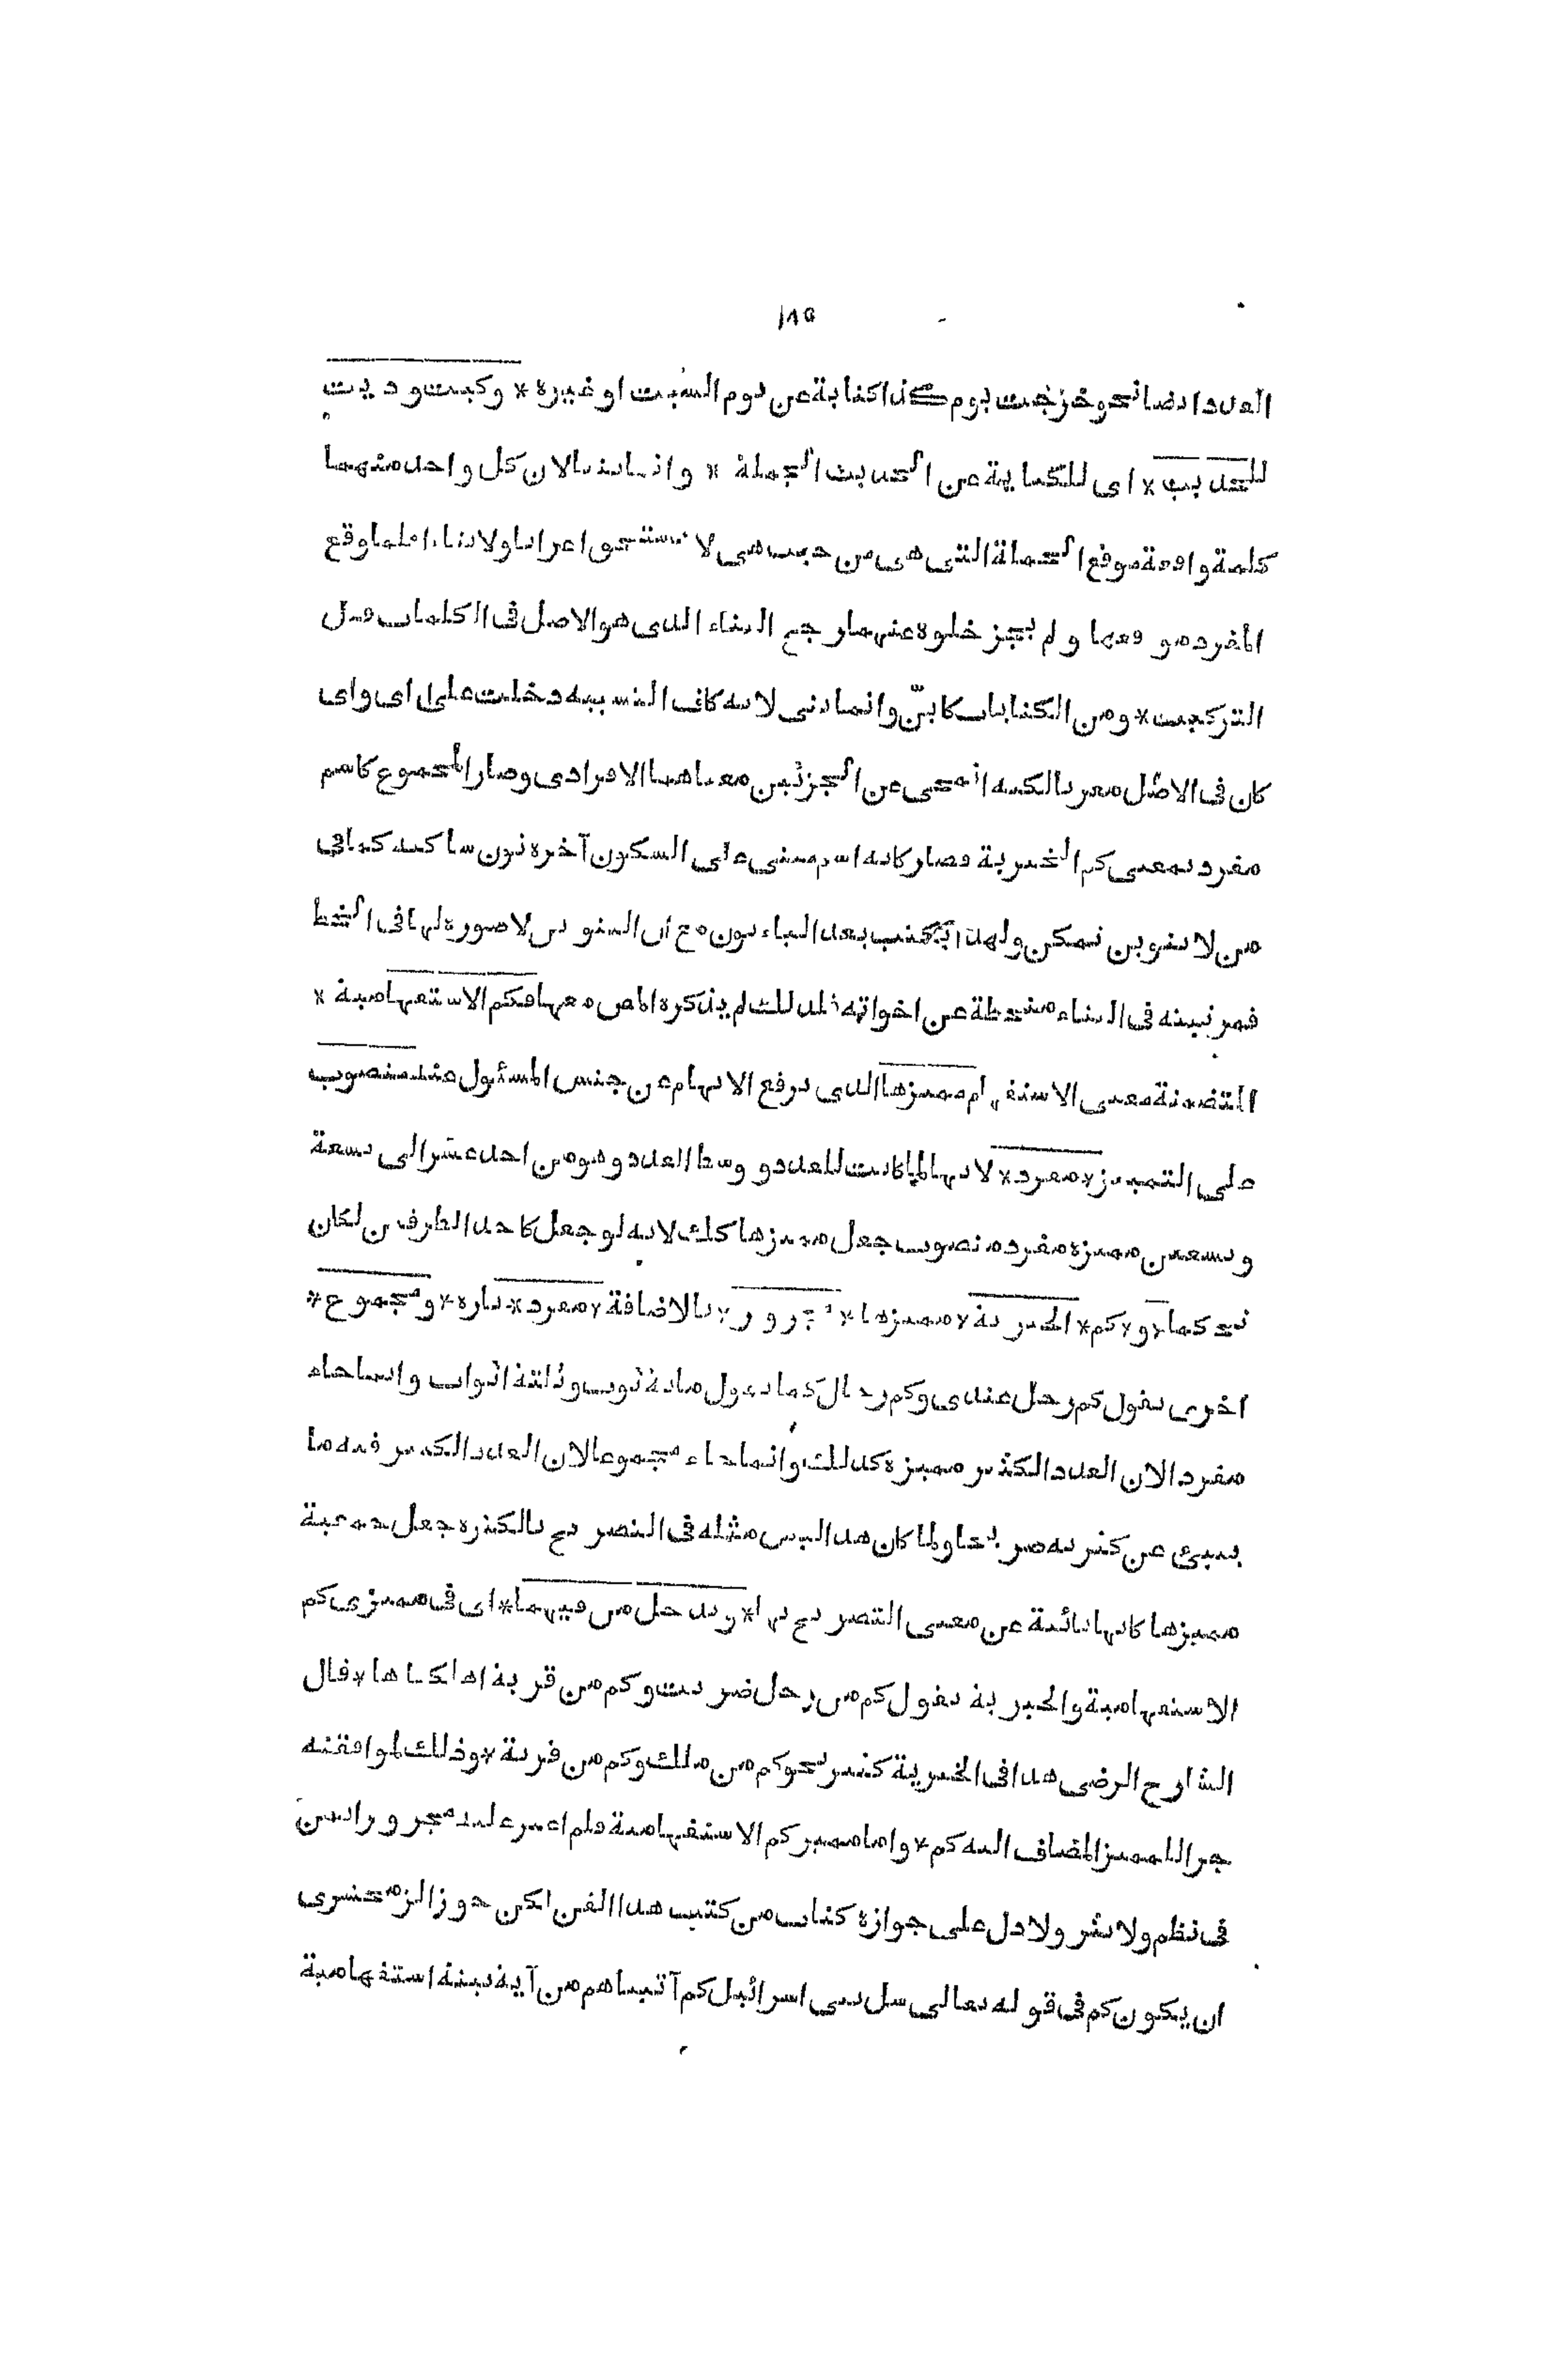 ١٨٥
العدد ايضا نحو خرجت يوم كذا كناية عن يوم السبت او غيره * وكيت وذيت
للحديث * اى للكناية عن الحديث الجملة * وانما بنيا لان كل واحد منهما
كلمة واقعة موقع الجملة التى هى من حيث هى لا تستحق اعرابا ولا بناء فلما وقع
المفرد موقعها ولم يجز خلوه عنهما رجح البناء الذى هو الاصل فى الكلمات قبل
التركيب * ومن الكنايات كايّن وانما بنى لانه كاف التشبيه دخلت على اى واى
كان فى الاصل معربا لكنه انمحى عن الجزئين معناهما الافرادى وصار المجموع كاسم
مفرد بمعنى كم الخبرية فصار كانه اسم مبنى على السكون آخره نون ساكنه كما فى
من لا تنوين تمكن ولهذا يكتب بعد الياء نون مع ان التنوين لا صورة لها فى الخط
فمرتبته فى البناء منحطة عن اخواته فلذلك لم يذكره المص معها فكم الاستفهامية *
المتضمنة معنى الاستفهام مميزها الذى يرفع الابهام عن جنس المسئول عنه منصوب
على التمييز * مفرد * لانها لما كانت للعدد ووسط العدد وهو من احد عشر الى تسعة
وتسعين مميزه مفرد منصوب جعل مميزها كذلك لانه لو جعل كاحد الطرفين لكان
تحكما * و * كم * الخبرية * مميزها * مجرور * بالاضافة * مفرد * تارة * ومجموع *
اخرى تقول كم رجل عندى وكم رجال كما تقول مائة ثوب وثلثة اثواب وانما جاء
مفردا لان العدد الكثير مميزه كذلك وانما جاء مجموعا لان العدد الكثير فيه ما
ينبئ عن كثرته صريحا ولما كان هذا ليس مثله فى التصريح بالكثرة جعل جمعية
مميزها كانها نائبة عن معنى التصريح بها * وتدخل من فيهما * اى فى مميزى كم
الاستفهامية والخبرية تقول كم من رجل ضربت وكم من قرية اهلكناها * قال
الشارح الرضى هذا فى الخبرية كثير نحو كم من ملك وكم من قرية * وذلك لموافقته
جر المميز المضاف اليه كم * واما مميز كم الاستفهامية فلم اعثر عليه مجرورا بمن
فى نظم ولا نثر ولا دل على جوازه كتاب من كتب هذا الفن لكن جوز الزمخشرى
ان يكون كم فى قوله تعالى سل بنى اسرائيل كم آتيناهم من آية بينة استفهامية